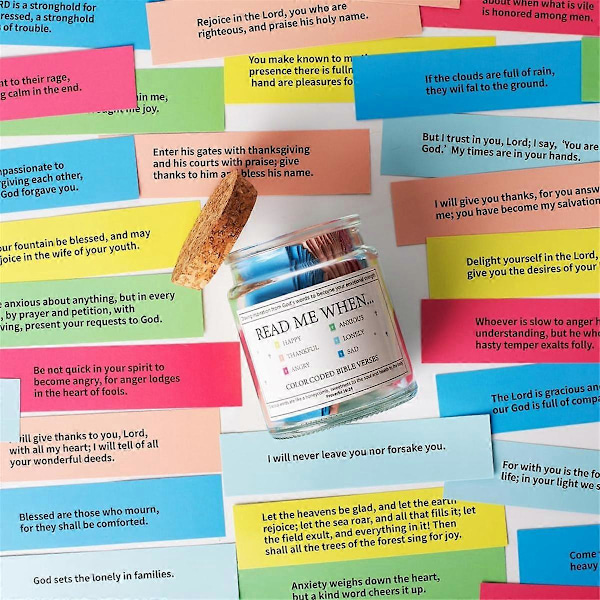 RD is a stronghold for
ressed, a stronghold
of trouble.
Rejoice in the Lord, you who are
righteous, and praise his holy name.
about when what is vile
is honored among men.
nt to their rage,
g calm in the end.
in me,
me joy.
You make known to m
presence there is fulln
hand are pleasures fo
If the clouds are full of rain,
they wil fal to the ground.
But I trust in you, Lord; I say, 'You are
God.' My times are in your hands.
mpassionate to
rgiving each other,
God forgave you.
Enter his gates with thanksgiving
and his courts with praise; give
thanks to him and bless his name.
I will give you thanks, for you answ
me; you have become my salvation
our fountain be blessed, and may
ejoice in the wife of your youth.
Delight yourself in the Lord,
give you the desires of your
e anxious about anything, but in every
, by prayer and petition, with
ving, present your requests to God.
Whoever is slow to anger h
understanding, but he wh
hasty temper exalts folly.
READ ME WHEN...
HAPPY
ANXIOUS
THANKFUL
LONELY
ANGRY
SAD
COLOR CODED BIBLE VERSES
Proverbs 16:24
Be not quick in your spirit to
become angry, for anger lodges
in the heart of fools.
The Lord is gracious an
our God is full of compa
will give thanks to you, Lord,
with all my heart; I will tell of all
your wonderful deeds.
I will never leave you nor forsake you.
For with you is the fo
life; in your light we s
Blessed are those who mourn,
for they shall be comforted.
Let the heavens be glad, and let the earth
rejoice; let the sea roar, and all that fills it; let
the field exult, and everything in it! Then
shall all the trees of the forest sing for joy.
Come
heavy
God sets the lonely in families.
Anxiety weighs down the heart,
but a kind word cheers it up.